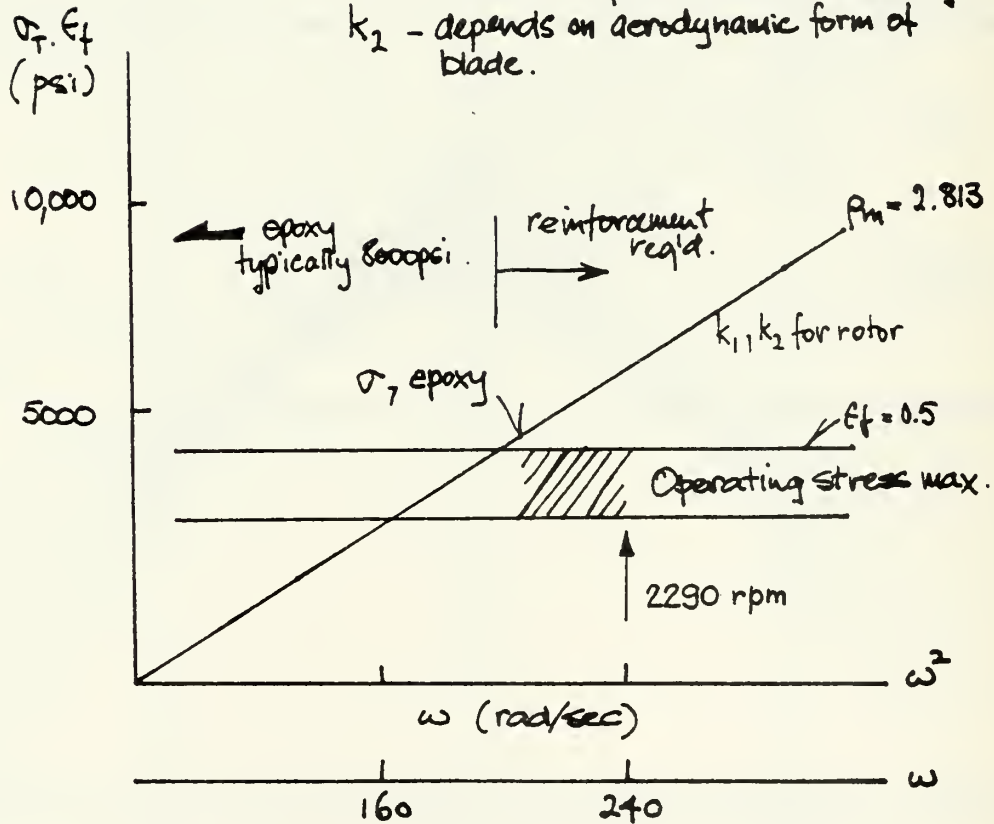 k₂ - depends on aerodynamic form of
blade.
σT. ϵf
(psi)
10,000
epoxy
typically 8000psi.
reinforcement
req'd.
ρm = 2.813
k₁, k₂ for rotor
σ, epoxy
5000
ϵf = 0.5
Operating stress max.
2290 rpm
ω²
ω (rad/sec)
ω
160
240